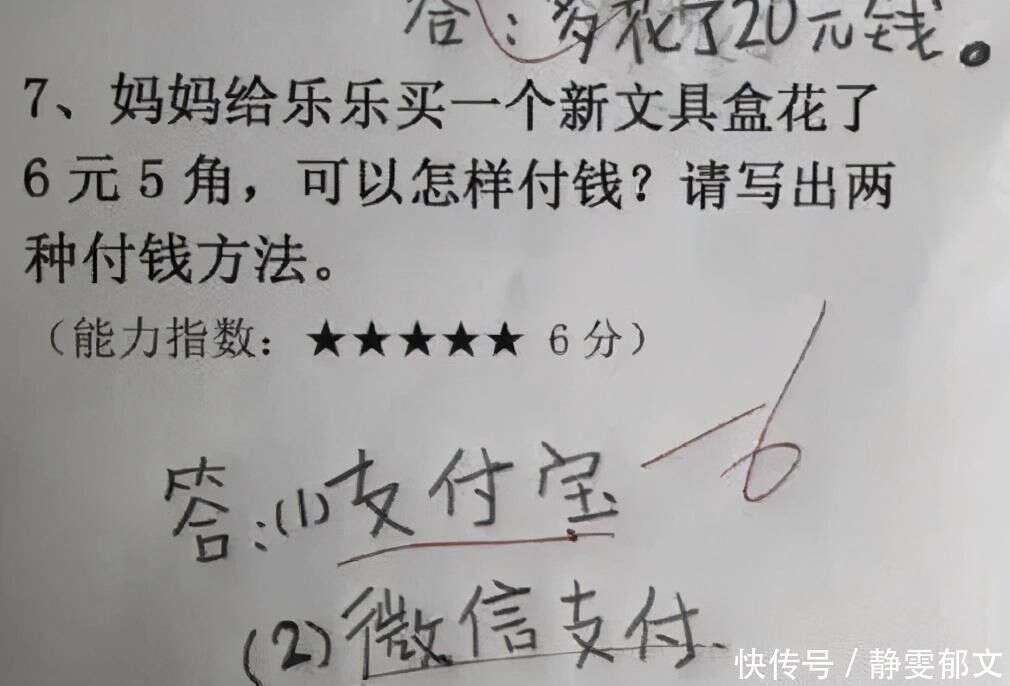 答：多花了20元钱。
7、妈妈给乐乐买一个新文具盒花了
6元5角，可以怎样付钱？请写出两
种付钱方法。
（能力指数：★★★★★ 6分）
-6
答：(1)支付宝
(2)微信支付.
快传号 / 静雯郁文